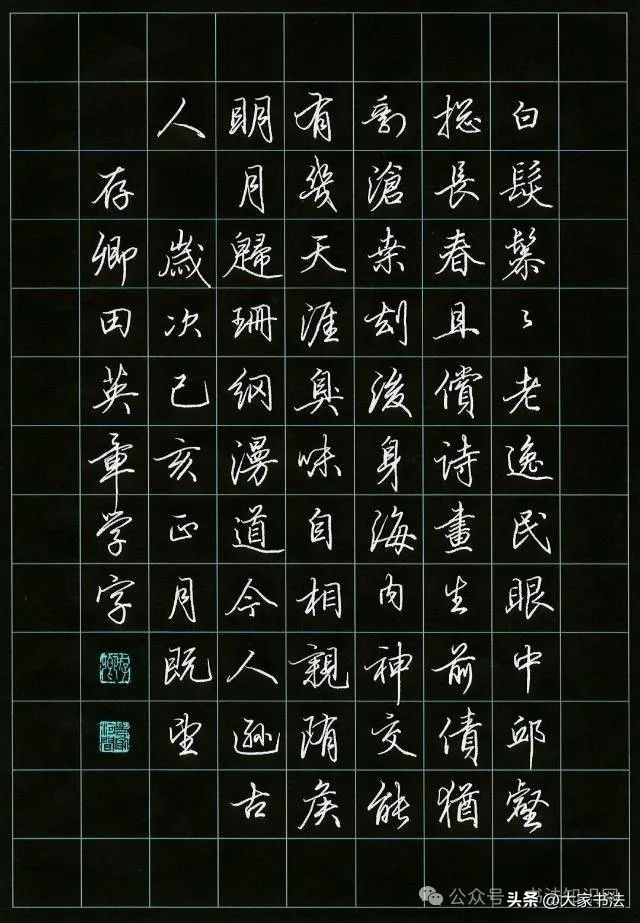 白髮鬖〻老逸民眼中邱壑
捴長春且償詩畫生前債猶
剩滄桒劫後身海内神交能
有幾天涯臭味自相親隋矦
明月歸珊網漫道今人遜古
人 歲次己亥正月既望
存卿田英章学字
公众号 · 书法知识网
头条 @大家书法